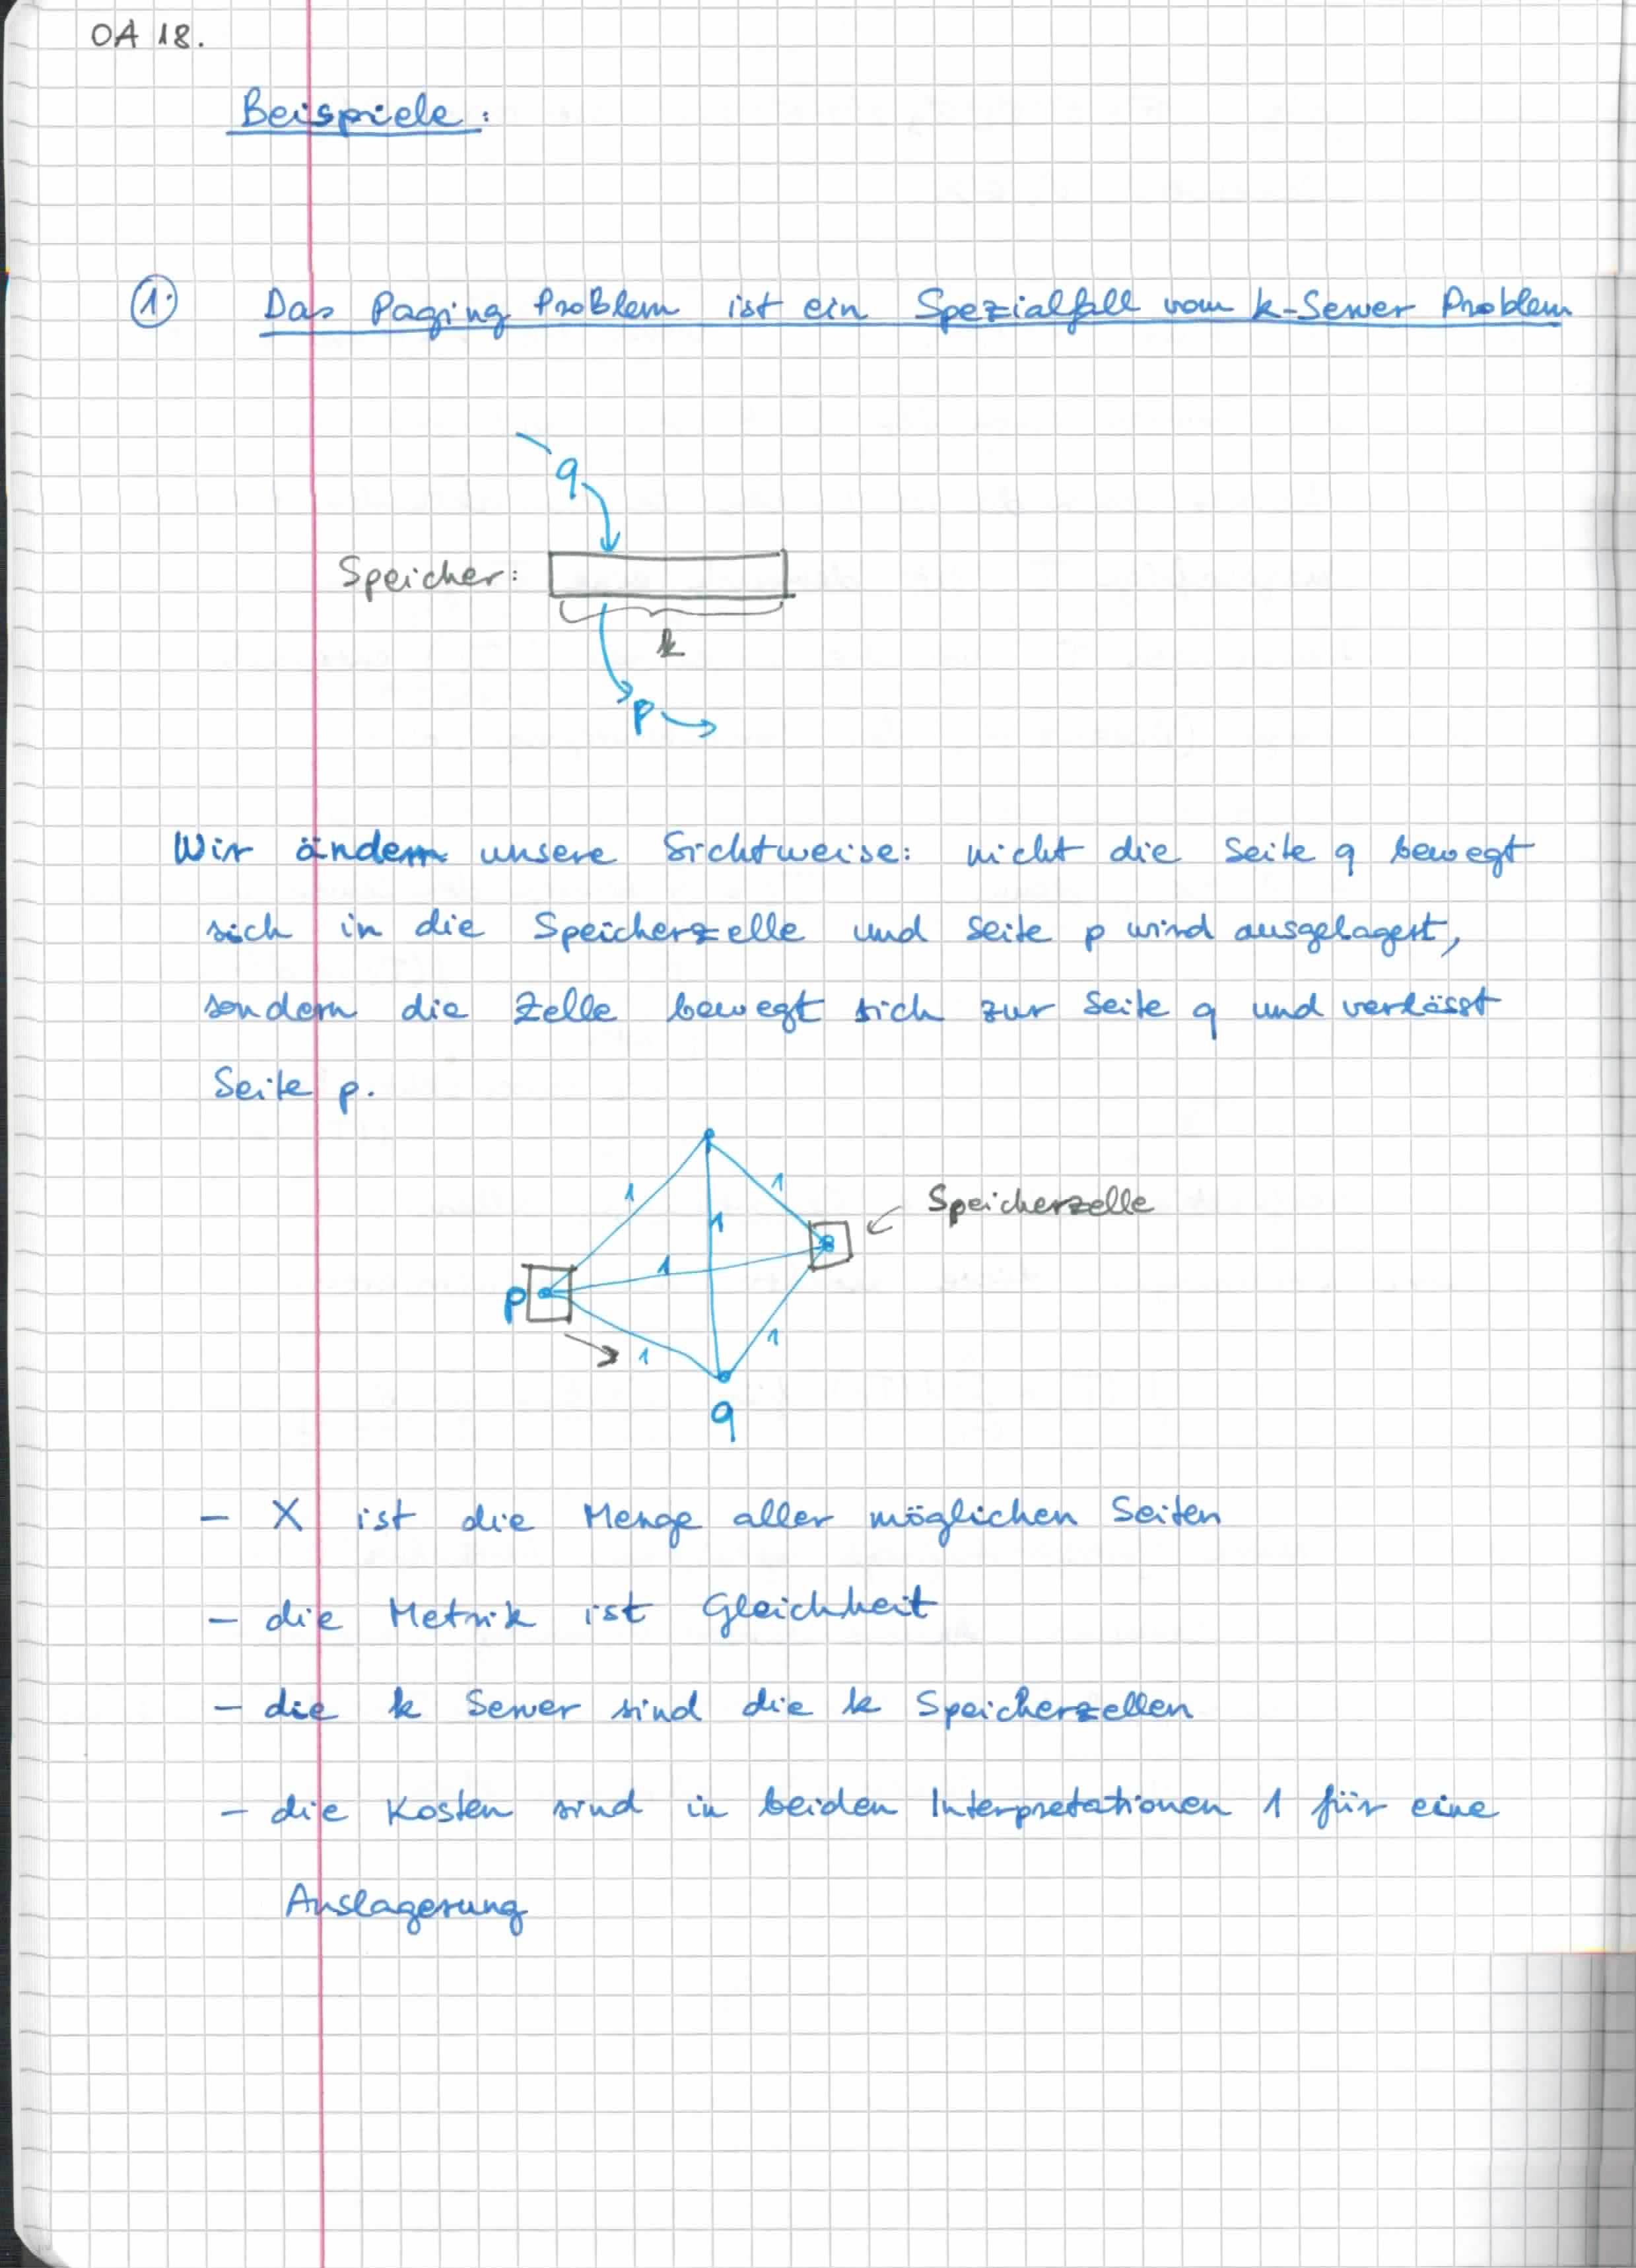 OA 18.
Beispiele:
1. Das Paging Problem ist ein Spezialfall vom k-Server Problem
q
Speicher:
k
p
Wir ändern unsere Sichtweise: nicht die Seite q bewegt
sich in die Speicherzelle und Seite p wird ausgelagert,
sondern die Zelle bewegt sich zur Seite q und verlässt
Seite p.
1 1
Speicherzelle
1
1
p
1 1
q
- X ist die Menge aller möglichen Seiten
- die Metrik ist Gleichheit
- die k Server sind die k Speicherzellen
- die Kosten sind in beiden Interpretationen 1 für eine
Auslagerung